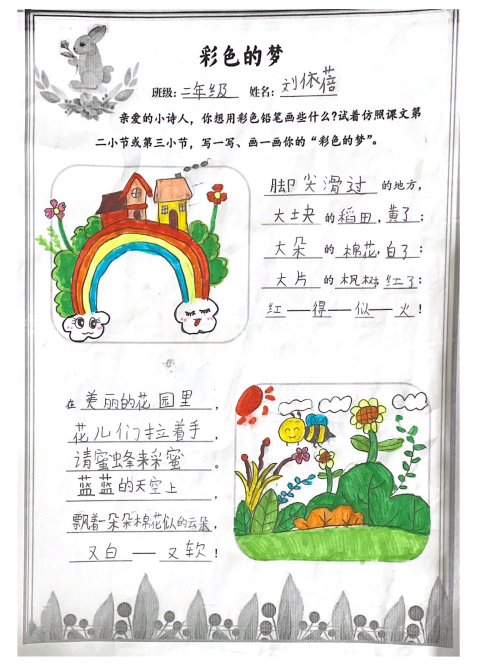 彩色的梦
班级:二年级 姓名:刘依蓓
亲爱的小诗人,你想用彩色铅笔画些什么?试着仿照课文第
二小节或第三小节,写一写、画一画你的“彩色的梦”。
脚尖滑过的地方,
大块的稻田,黄了;
大朵的棉花,白了;
大片的枫树,红了;
红——得——似——火!
在美丽的花园里,
花儿们拉着手,
请蜜蜂来采蜜。
蓝蓝的天空上,
飘着一朵朵棉花似的云朵,
又白——又软!